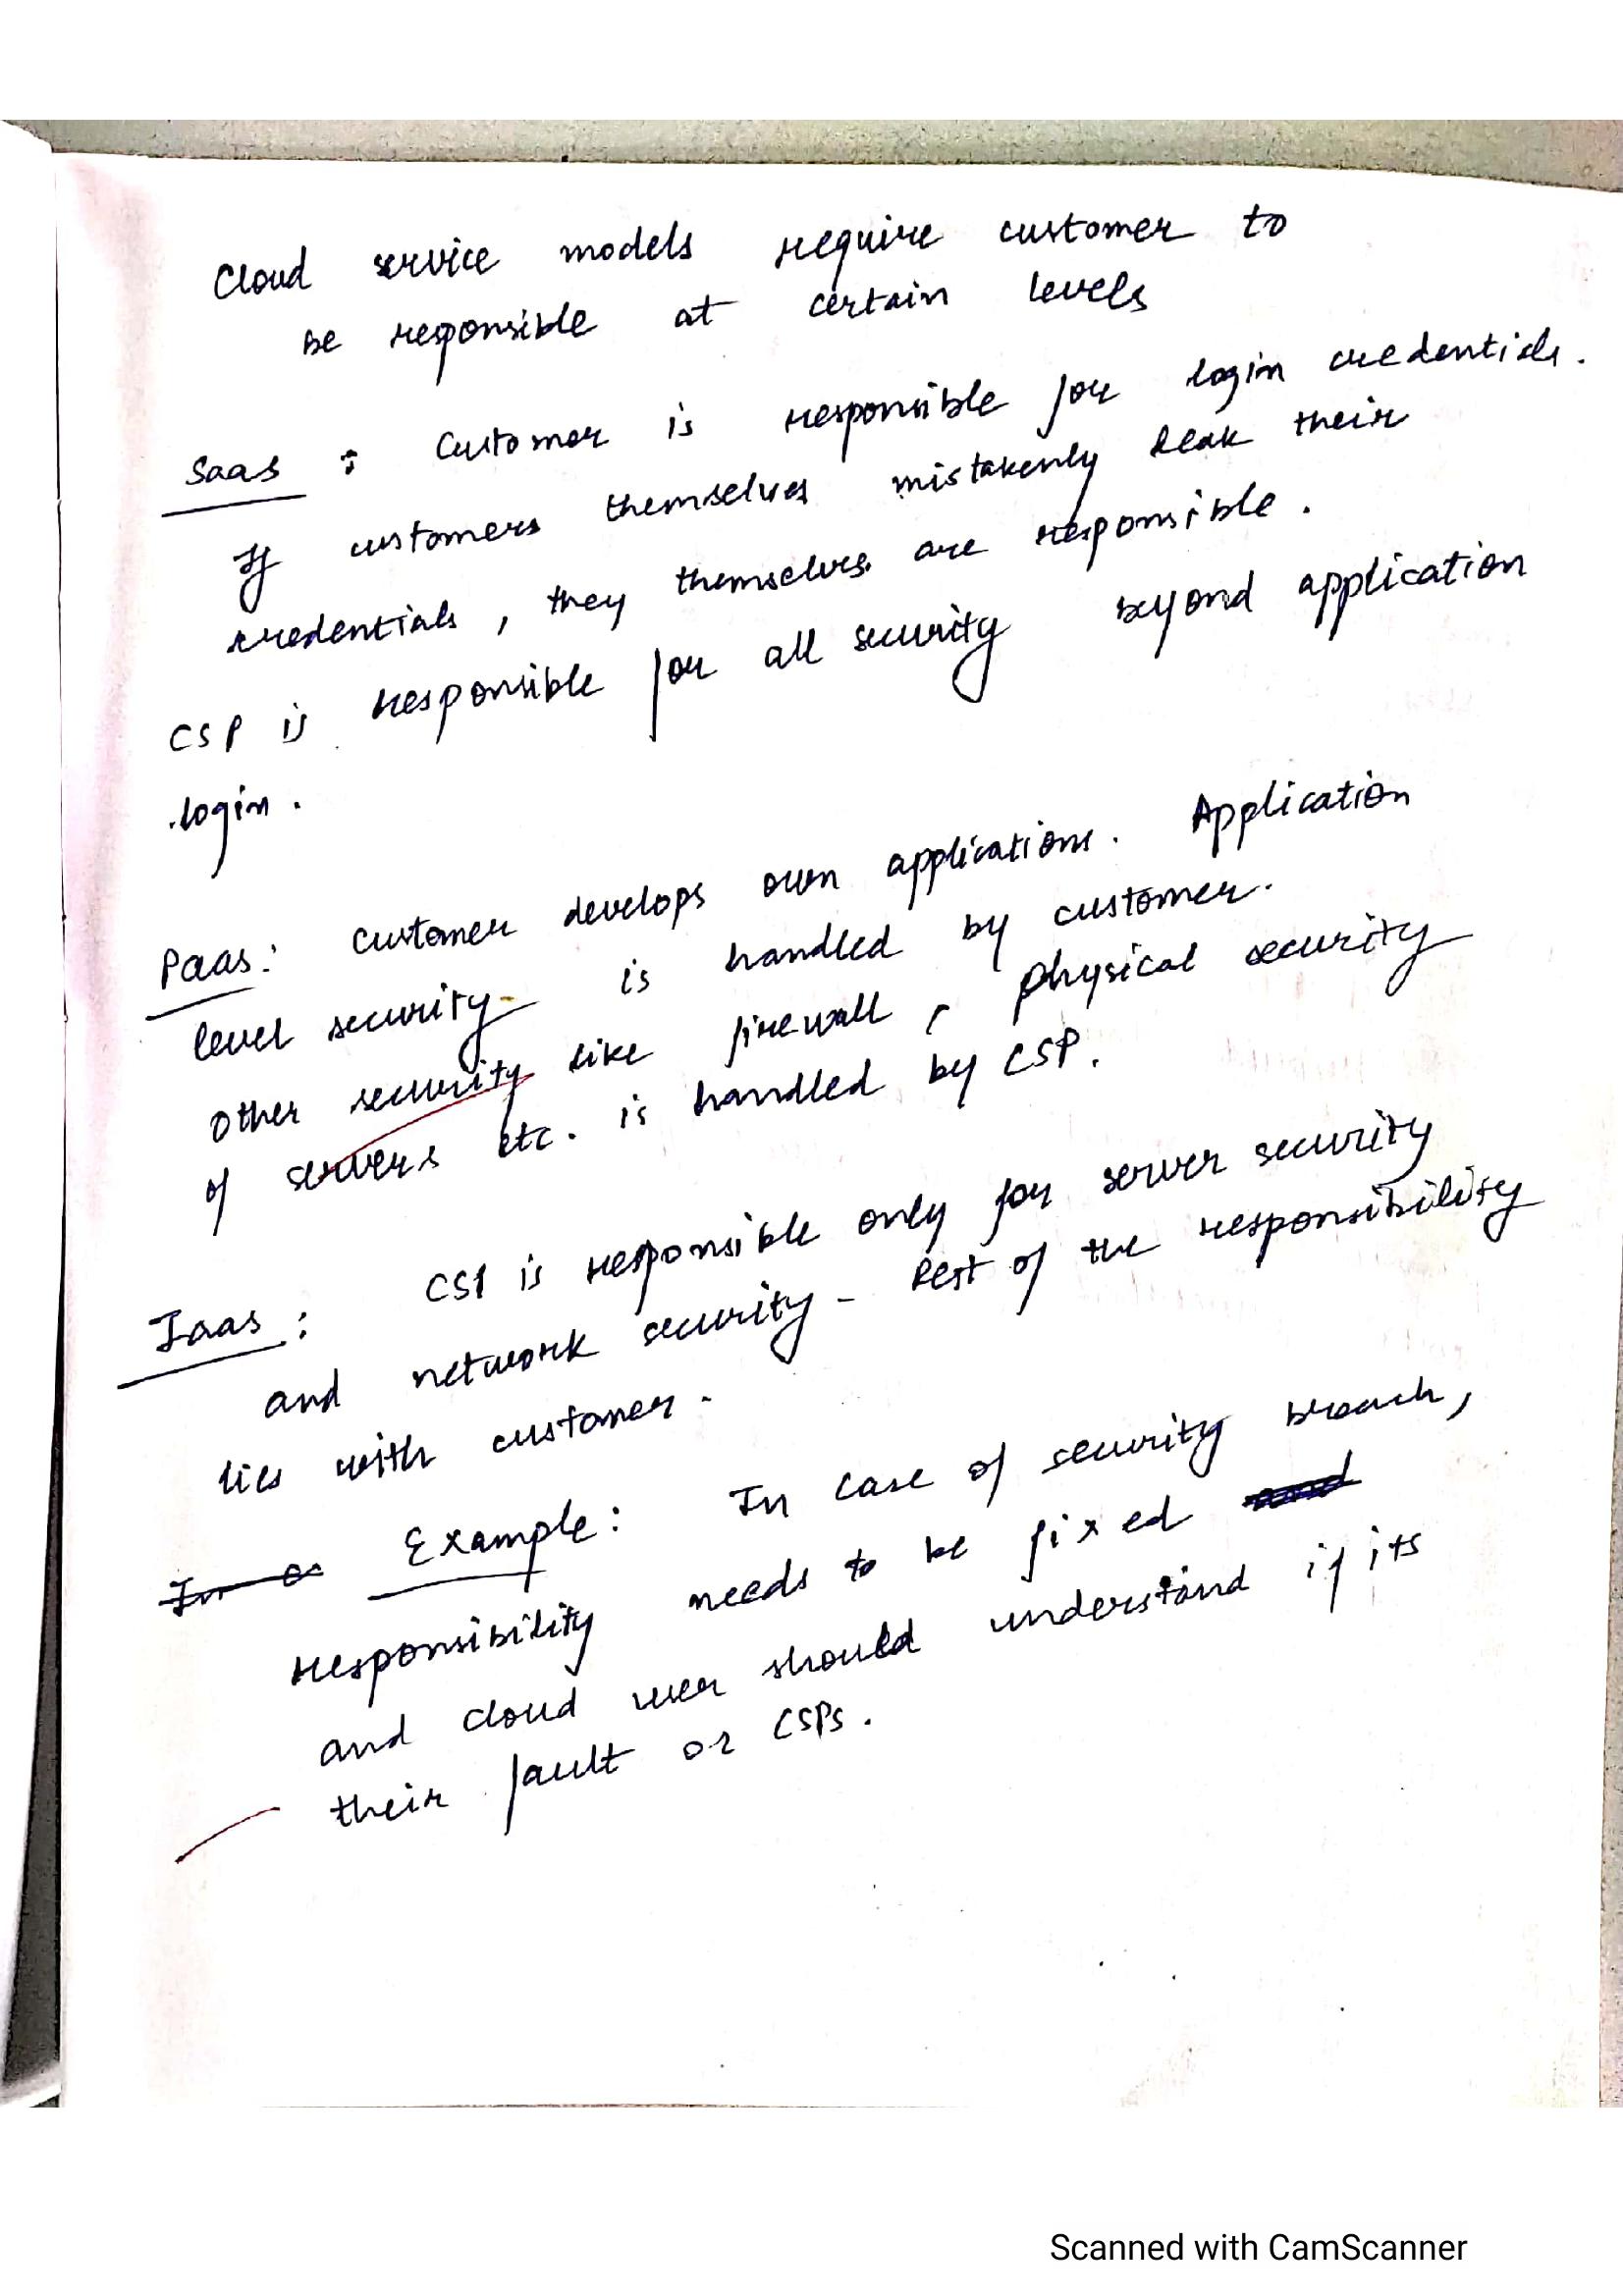 Cloud service models require customer to
be responsible at certain levels
Saas : Customer is responsible for login credentials.
If customers themselves mistakenly leak their
credentials, they themselves are responsible.
CSP is responsible for all security beyond application
login.
Paas: Customer develops own applications. Application
level security is handled by customer.
Other security like firewall, physical security
of servers etc. is handled by CSP.
Iaas: CSP is responsible only for server security
and network security. Rest of the responsibility
lies with customer.
Example: In case of security breach,
responsibility needs to be fixed
and cloud user should understand if its
their fault or CSPs.
Scanned with CamScanner